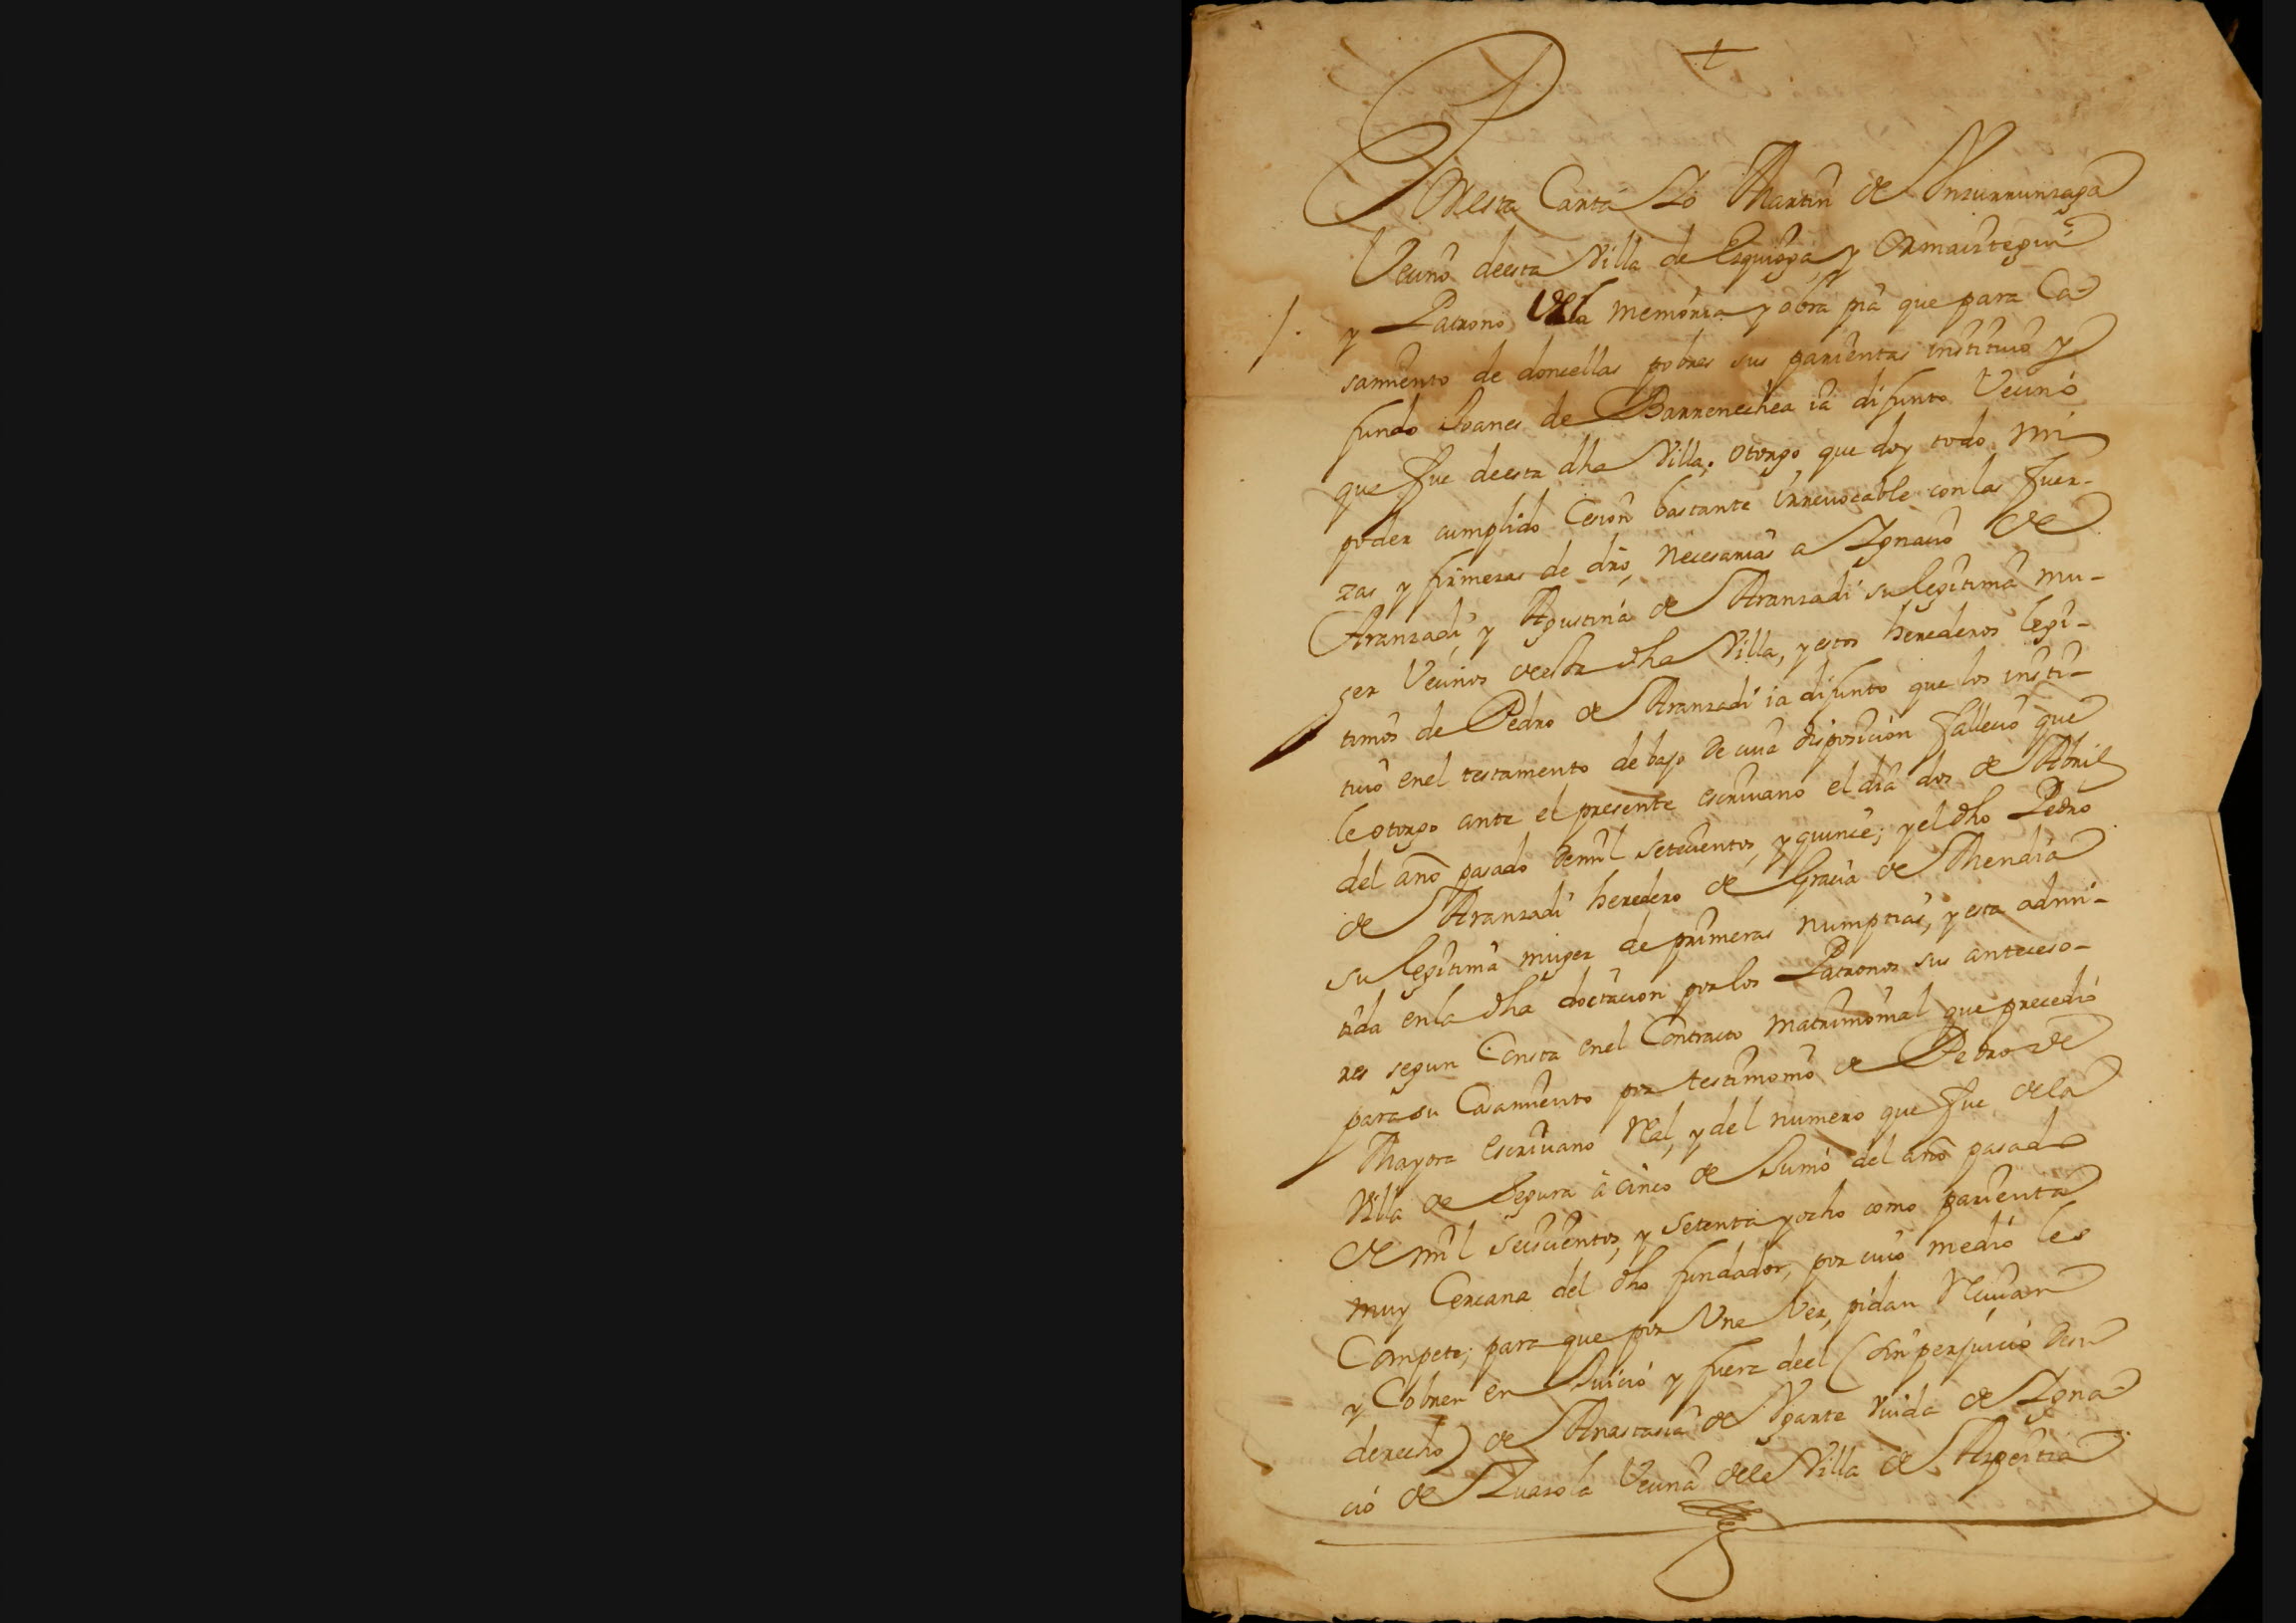 Por esta Carta Yo Martin de Insurrunzaga
Vecino deesta Villa de Ezquioga, y Ormaiztegui
y Patrono dela memoria y obra pia que para Ca-
samiento de doncellas pobres sus parientas instituio y
fundo Joanes de Barrenechea ia difunto Vecino
que fue deesta dha Villa; otorgo que doy todo mi
poder cumplido Cesion bastante irreuocable con las fuer-
zas y firmezas de dro, necesarias a Ignacio de
Aranzadi, y Agustina de Aranzadi su legitima mu-
ger Vecinos deesta dha Villa, y estos herederos legi-
timos de Pedro de Aranzadi ia difunto que los insti-
tuio enel testamento debajo de cuia disposicion fallecio que
le otorgo ante el presente escriuano el dia dos de Abril
del año pasado demil setecientos, y quince; y el dho Pedro
de Aranzadi heredero de Gracia de Mendia
su legitima muger de primeras numptias, y esta admi-
tida enla dha doctacion por los Patronos sus anteceso-
res segun Consta enel Contracto matrimonial que precedio
para su Casamiento por testimonio de Pedro de
Mayora Escriuano Ral, y del numero que fue dela
Villa de Segura â cinco de Junio del año pasado
de mil seiscientos, y setenta y ocho como parienta
muy Cercana del dho fundador, por cuio medio les
Compete; para que por Une Vez, pidan Reciuan
y Cobren en Juicio y fuera deel (sin perjuicio desu
derecho) de Anastasia de Ygarte Viuda de Igna-
cio de Zuazola Vecina dela Villa de Azpeitia